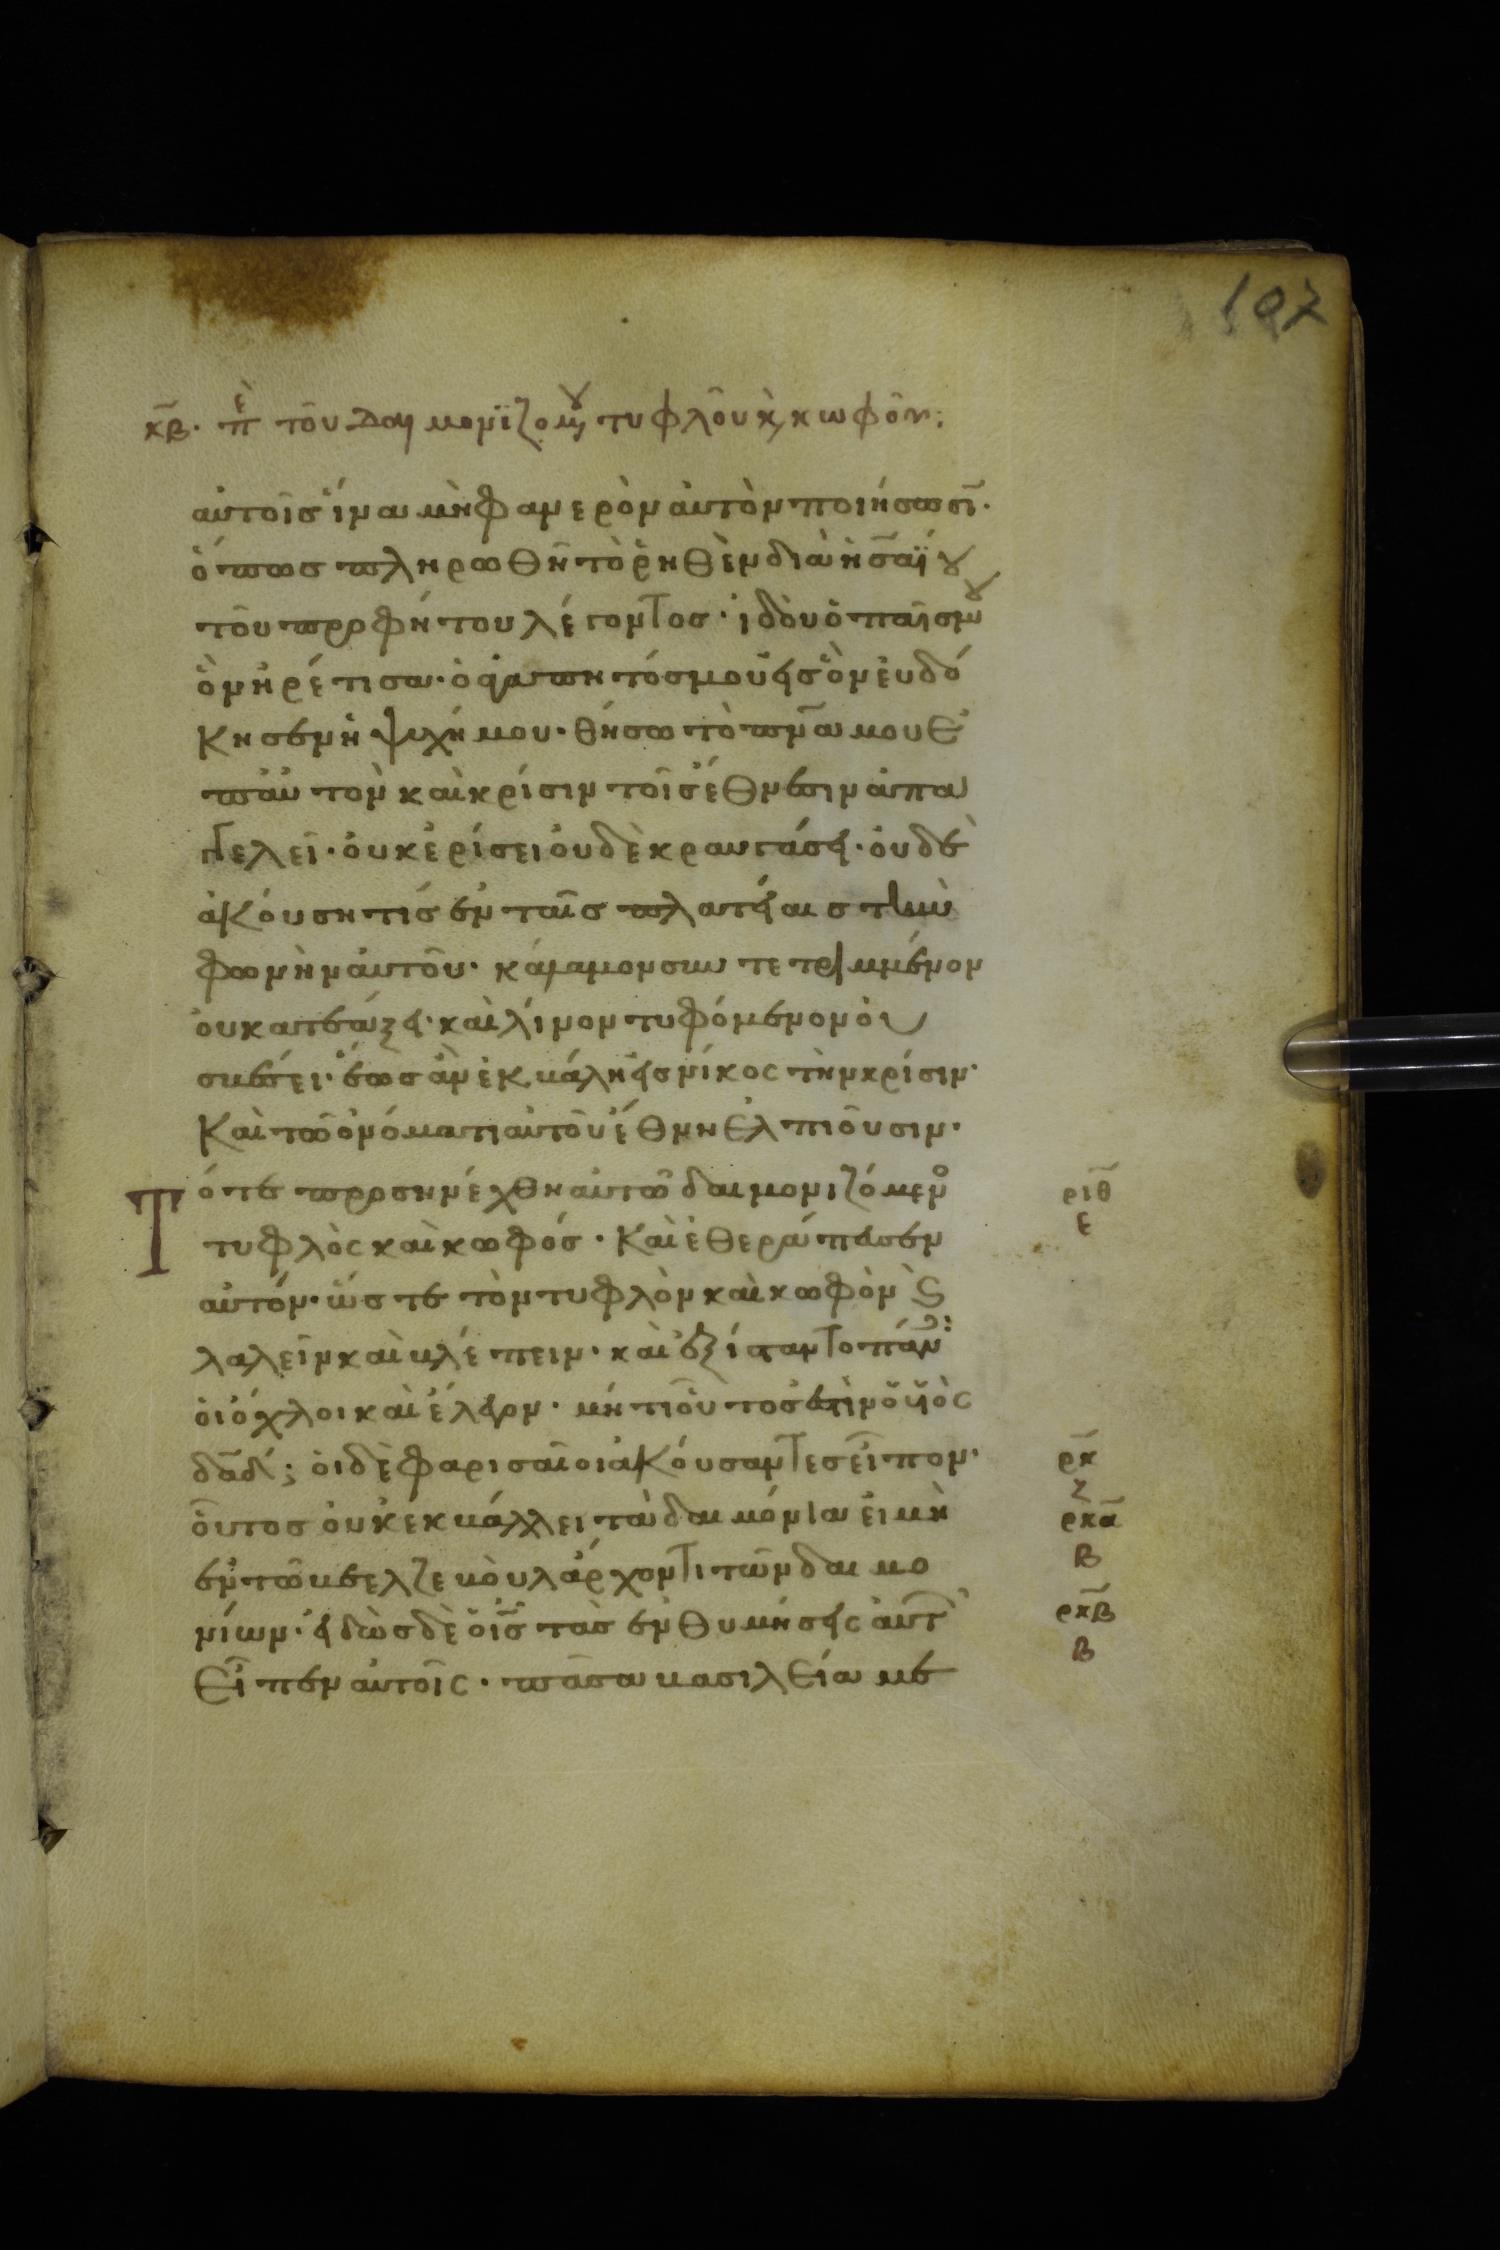 107
κβ̅. πε τοῦ δαιμονϊζομου τυφλοῦ κ, κωφοῦ:
αὐτοῖσ ἵνα μὴ φανερὸν αὐτὸν ποιήσωσῑ.
ὅπωσ πληρωθῆ τὸ ῥηθὲν διὰ ἡσαΐου
τοῦ προφήτου λέγοντοσ· ἰδοὺ ὁ παῖσ μου
ὃν ἠρέτισα· ὁ ἀγαπητόσ μου εἰσ ὃν εὐδό
κησεν ἡ ψυχή μου· θήσω τὸ πν̅α μου ἐ
π' αὐτὸν καὶ κρίσιν τοῖσ ἔθνεσιν ἀπα
γγελεῖ· οὐκ ἐρίσει οὐδὲ κραυγάσει· οὐδὲ
ἀκούση τίσ ἐν ταῖσ πλατείαισ τὴν
φωνὴν αὐτοῦ· κάλαμον συντετριμμένον
οὐ κατεάξει· καὶ λίνον τυφόμενον οὐ
σβέσει· ἕωσ ἂν ἐκβάλη εἰσ νίκος τὴν κρίσιν·
Καὶ τῶ ὀνόματι αὐτοῦ ἔθνη ἐλπιοῦσιν·
Τότε προσηνέχθη αὐτῶ δαιμονιζόμενο ριθ̅
τυφλὸς καὶ κωφόσ· Καὶ ἐθεράπευσεν ε
αὐτόν· ὥστε τὸν τυφλὸν καὶ κωφὸν ϛ
λαλεῖν καὶ βλέπειν· καὶ ἐξίσταντο πάντ:
οἱ ὄχλοι καὶ ἔλεγον· μήτι οὗτοσ ἐστὶν ὁ υἱὸς
δα̅δ; οἱ δὲ φαρισαῖοι ἀκούσαντεσ εἶπον· ρκ̅
οὗτοσ οὐκ ἐκβάλλει τὰ δαιμόνια εἰ μὴ ζ ρκα̅
ἐν τῶ βεελζεβοὺλ ἄρχοντι τῶν δαιμο β
νίων· εἰδὼσ δὲ ὁ ι̅σ τὰσ ἐνθυμήσεις αὐτ ρκβ̅
Εἶπεν αὐτοῖς· πᾶσα βασιλεία με β